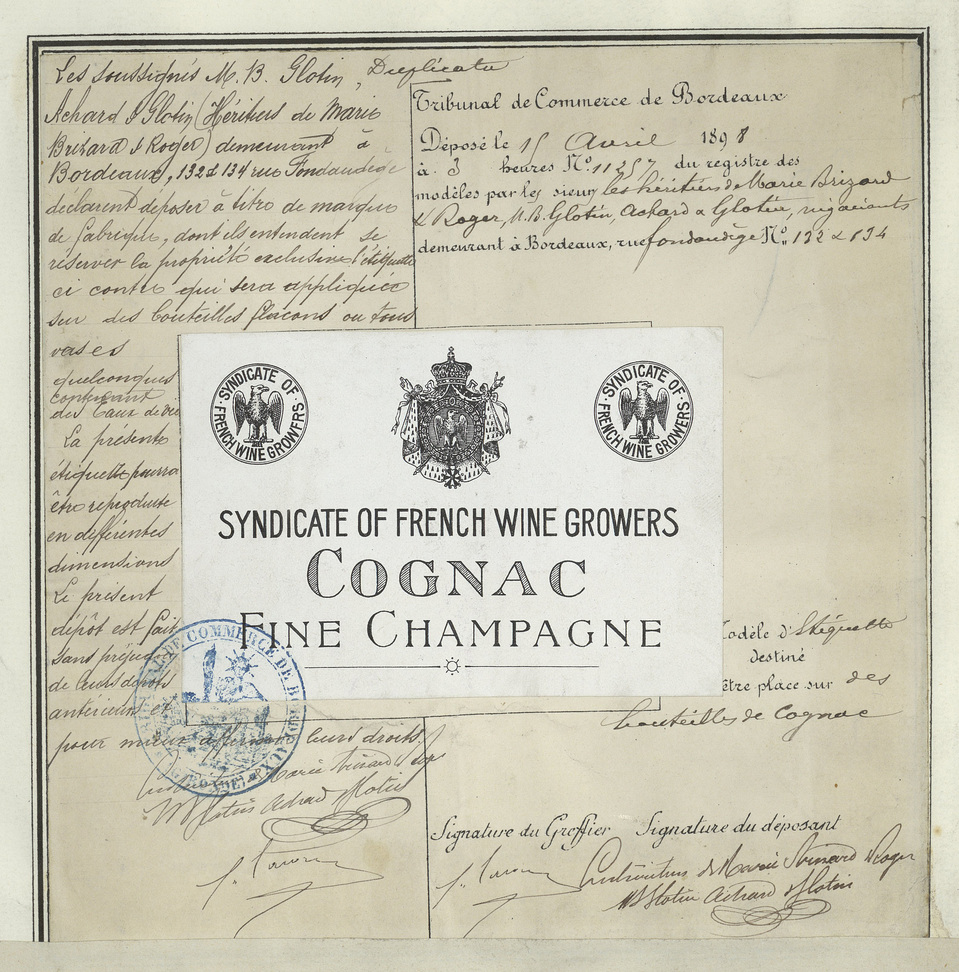 Les soussignés M. B. Glotin, Duplicata
Achard & Glotin (Héritiers de Marie
Brizard & Roger) demeurant à
Bordeaux, 132 & 134 rue Fondaudège
déclarent déposer à titre de marque
de fabrique, dont ils entendent se
réserver la propriété exclusive l'étiquette
ci contre qui sera appliquée
sur des bouteilles flacons ou tous
vases
quelconques
contenant
des Eaux de vie
La présente
étiquette pourra
être reproduite
en différentes
dimensions
Le présent
dépôt est fait
sans préjudice
de leurs dépôts
antérieurs et
pour mieux affirmer leurs droits.
Marie Brizard & Roger
M. B. Glotin Achard & Glotin
Tribunal de Commerce de Bordeaux
Déposé le 15 Avril 1898
à 3 heures No. 11257 du registre des
modèles par les sieurs les héritiers de Marie Brizard
& Roger, M. B. Glotin, Achard & Glotin, négociants
demeurant à Bordeaux, rue fondaudège No. 132 & 134
SYNDICATE OF FRENCH WINE GROWERS
SYNDICATE OF FRENCH WINE GROWERS
SYNDICATE OF FRENCH WINE GROWERS
COGNAC
FINE CHAMPAGNE
odèle d'Etiquette
destiné
être place sur des
bouteilles de Cognac
DE COMMERCE DE BORDEAUX
Signature du Greffier Signature du déposant
Les héritiers de Marie Brizard & Roger
M B Glotin Achard & Glotin